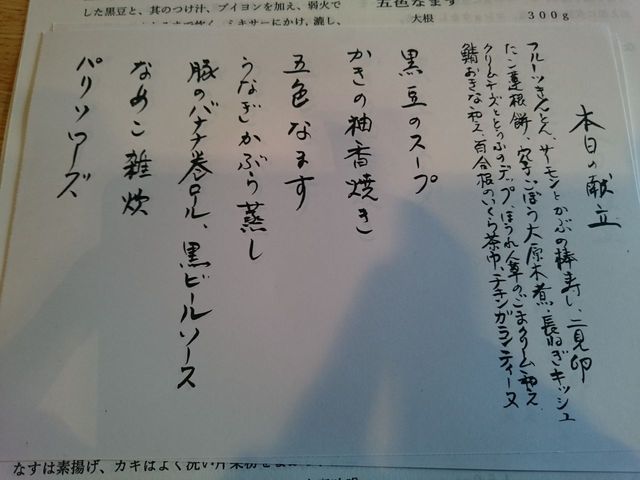 した黒豆と、其のつけ汁、ブイヨンを加え、弱火で
ミキサーにかけ、漉し、
五色なます
大根
300g
本日の献立
フルーツきんとん、サーモンとかぶの棒寿し、二見卵
たこ蓮根餅、穴子ごぼう大原木煮、長ねぎキッシュ
クリームチーズととうふのディップ、ほうれん草のごまクリーム和え
鯖おきな和え、百合根のいくら茶巾、チキンガランティーヌ
黒豆のスープ
かきの柚香焼き
五色なます
うなぎかぶら蒸し
豚のバナナ巻ロール、黒ビールソース
なめこ雑炊
パリソワーズ
なすは素揚げ、カキはよく洗い片栗粉を